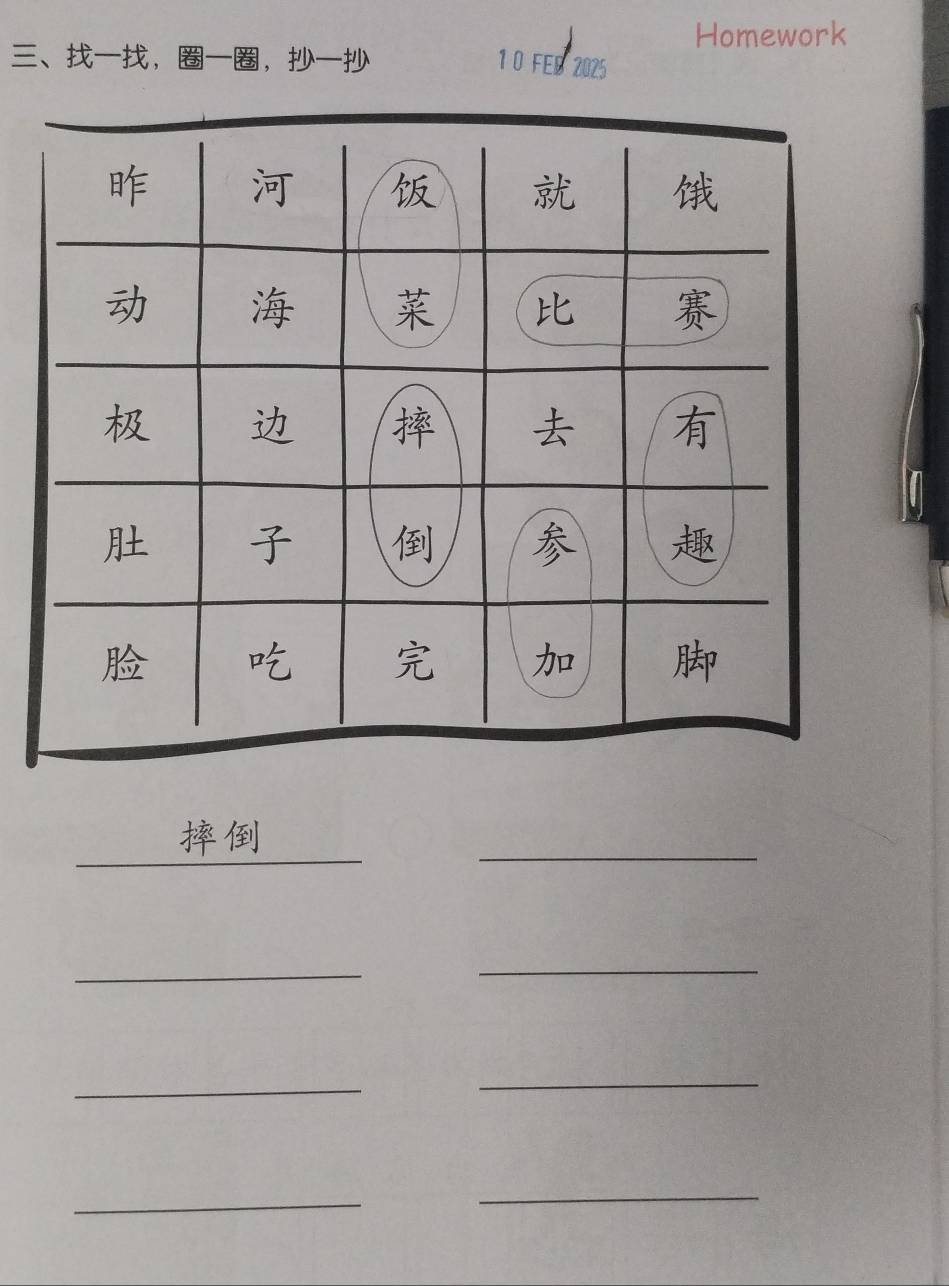 Homework
三、找一找，圈一圈，抄一抄
10 FEB 2025
昨 河 饭 就 饿
动 海 菜 比 赛
极 边 摔 去 有
肚 子 倒 参 趣
脸 吃 完 加 脚
摔倒